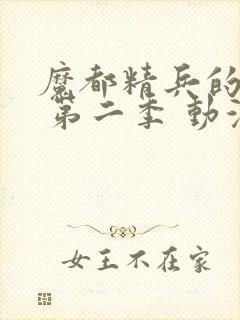 魔都精兵的
第二季 動
女王不在家